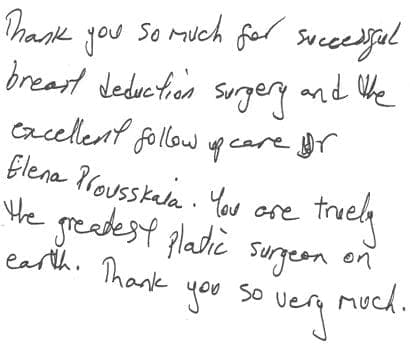 Thank you so much for successful
breast deduction surgery and the
excellent follow up care Dr
Elena Prousskaia. You are truely
the greadest pladic surgeon on
earth. Thank you so very much.